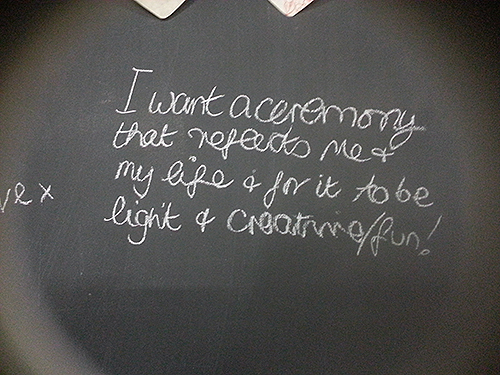 I want a ceremony
that reflects me &
my life & for it to be
light & creative/fun!
x